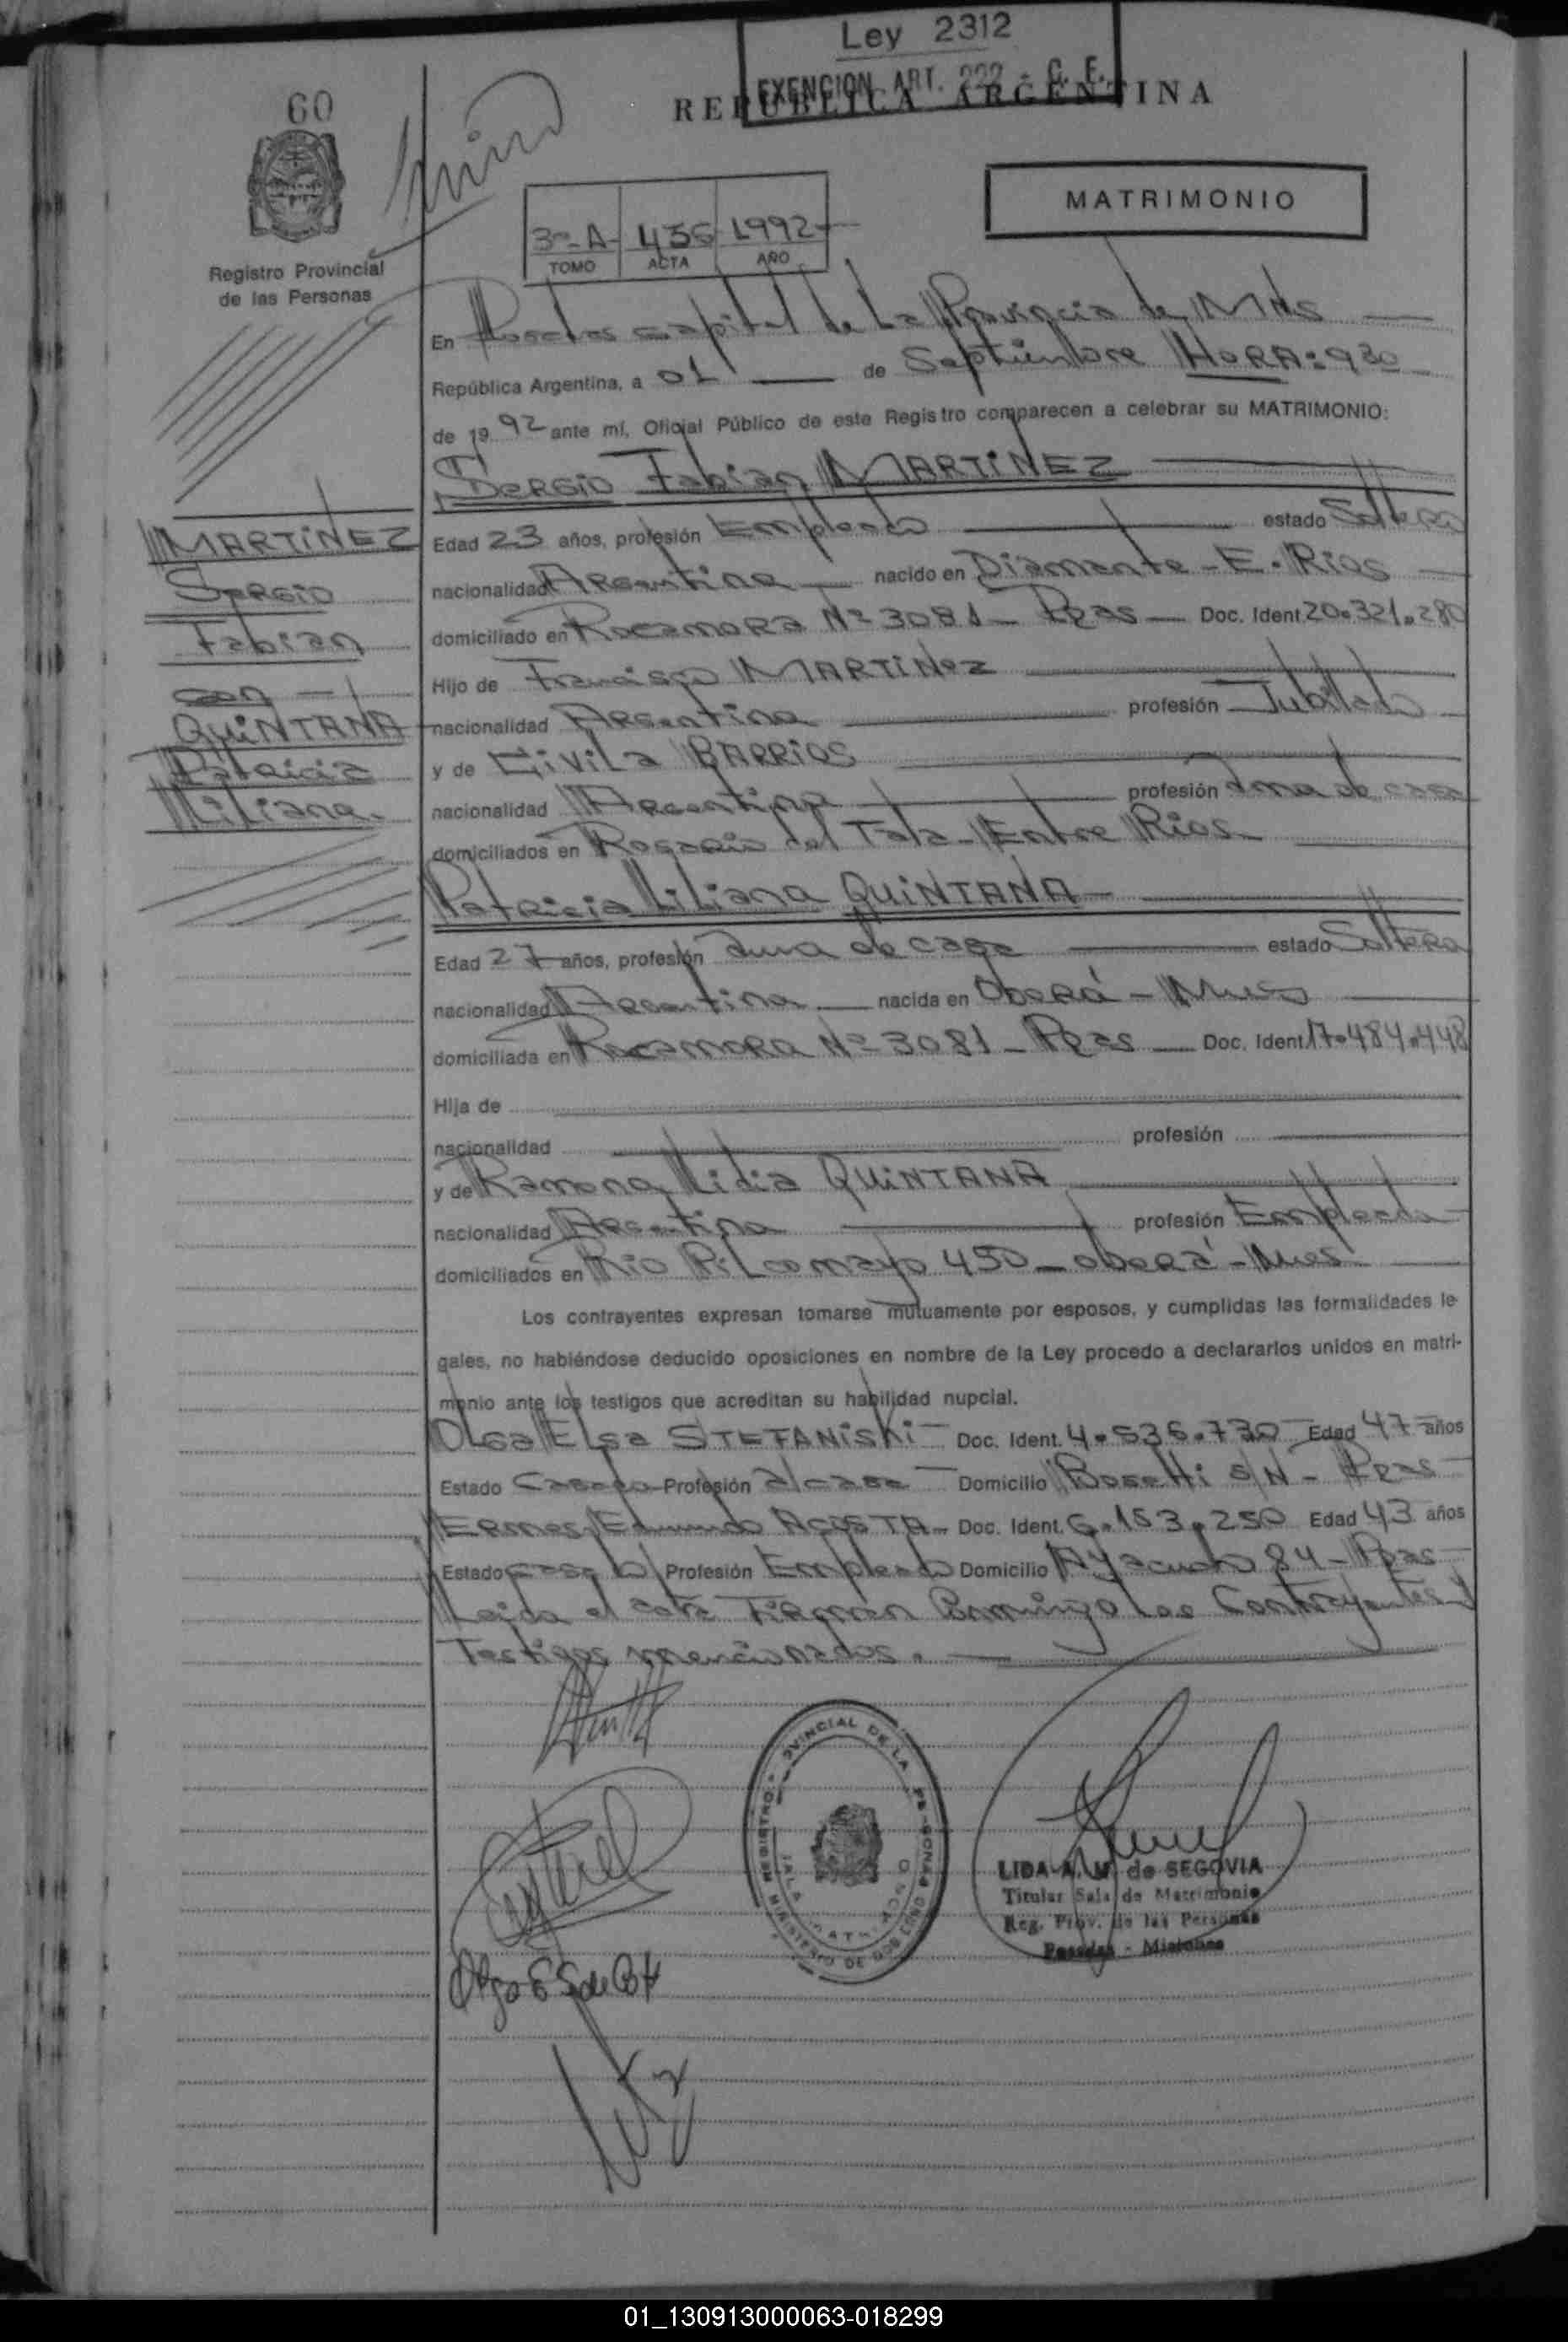 Ley 2312
EXENCION ART. 222 - C. F.
REPUBLICA ARGENTINA
60
MATRIMONIO
3º-A- 435 1992-
TOMO ACTA AÑO
Registro Provincial
de las Personas
En Posadas capital de La Provincia de Mnes
República Argentina, a 01 de Septiembre HORA: 930
de 1992 ante mí, Oficial Público de este Registro comparecen a celebrar su MATRIMONIO:
SERGIO Fabian MARTINEZ
MARTINEZ
Sergio
Fabian
con
QUINTANA
Patricia
Liliana.
Edad 23 años, profesión Empleado estado Soltero
nacionalidad Argentina nacido en Diamante - E. Rios
domiciliado en Rocamora Nº 3081 - Pdas - Doc. Ident 20.321.280
Hijo de Francisco MARTINEZ
nacionalidad Argentina profesión Jubilado
y de BARRIOS
nacionalidad Argentina profesión Ama de casa
domiciliados en Rosario del Tala - Entre Rios -
Patricia Liliana QUINTANA -
Edad 27 años, profesión Ama de casa estado Soltera
nacionalidad Argentina nacida en Oberá - Mnes
domiciliada en Rocamora Nº 3081 - Pdas - Doc. Ident. 17.484.448
Hija de
nacionalidad profesión
y de Ramona Lidia QUINTANA
nacionalidad Argentina profesión Empleada
domiciliados en Rio Pilcomayo 450 - oberá - Mnes
Los contrayentes expresan tomarse mutuamente por esposos, y cumplidas las formalidades le-
gales, no habiéndose deducido oposiciones en nombre de la Ley procedo a declararlos unidos en matri-
monio ante los testigos que acreditan su habilidad nupcial.
Olga Elsa STEFANISKI - Doc. Ident. 4.536.730 Edad 47 años
Estado Casada Profesión a/casa Domicilio Bosetti S/N - Pdas
Ermes Edmundo ACOSTA - Doc. Ident. 6.153.250 Edad 43 años
Estado casado Profesión Empleado Domicilio Ayacucho 84 - Pdas
Leida el acta Firman Conmigo Los Contrayentes y
Testigos mencionados.
REGISTRO PROVINCIAL DE LAS PERSONAS
MINISTERIO DE GOBIERNO
LIDA A. M. de SEGOVIA
Titular Sala de Matrimonio
Reg. Prov. de las Personas
Posadas - Misiones
Olga E S de
01_130913000063-018299